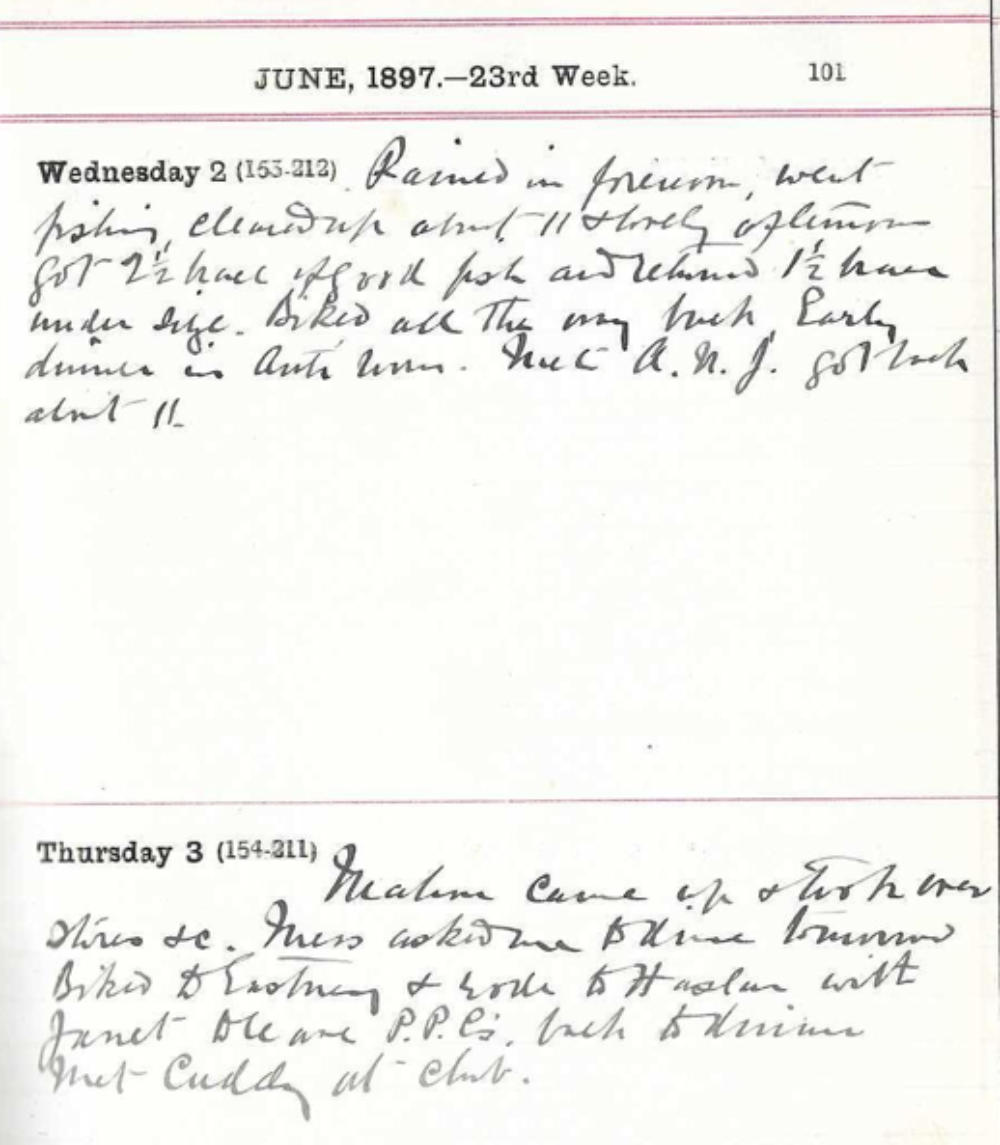 JUNE, 1897.—23rd Week. 101
Wednesday 2 (153-212) Rained in forenoon, went
fishing, cleared up about 11 & lovely afternoon
got 2½ brace of good fish and returned 1½ brace
under size. Biked all the way back, Early
dinner in Ante room. Met A. N. J. got back
about 11.
Thursday 3 (154-211)
came up & took over
stores &c. Mess asked me to dine tomorrow
Biked to Eastney & rode to Haslar with
Janet to leave P.P.C's. back to dinner
Met Cuddy at Club.